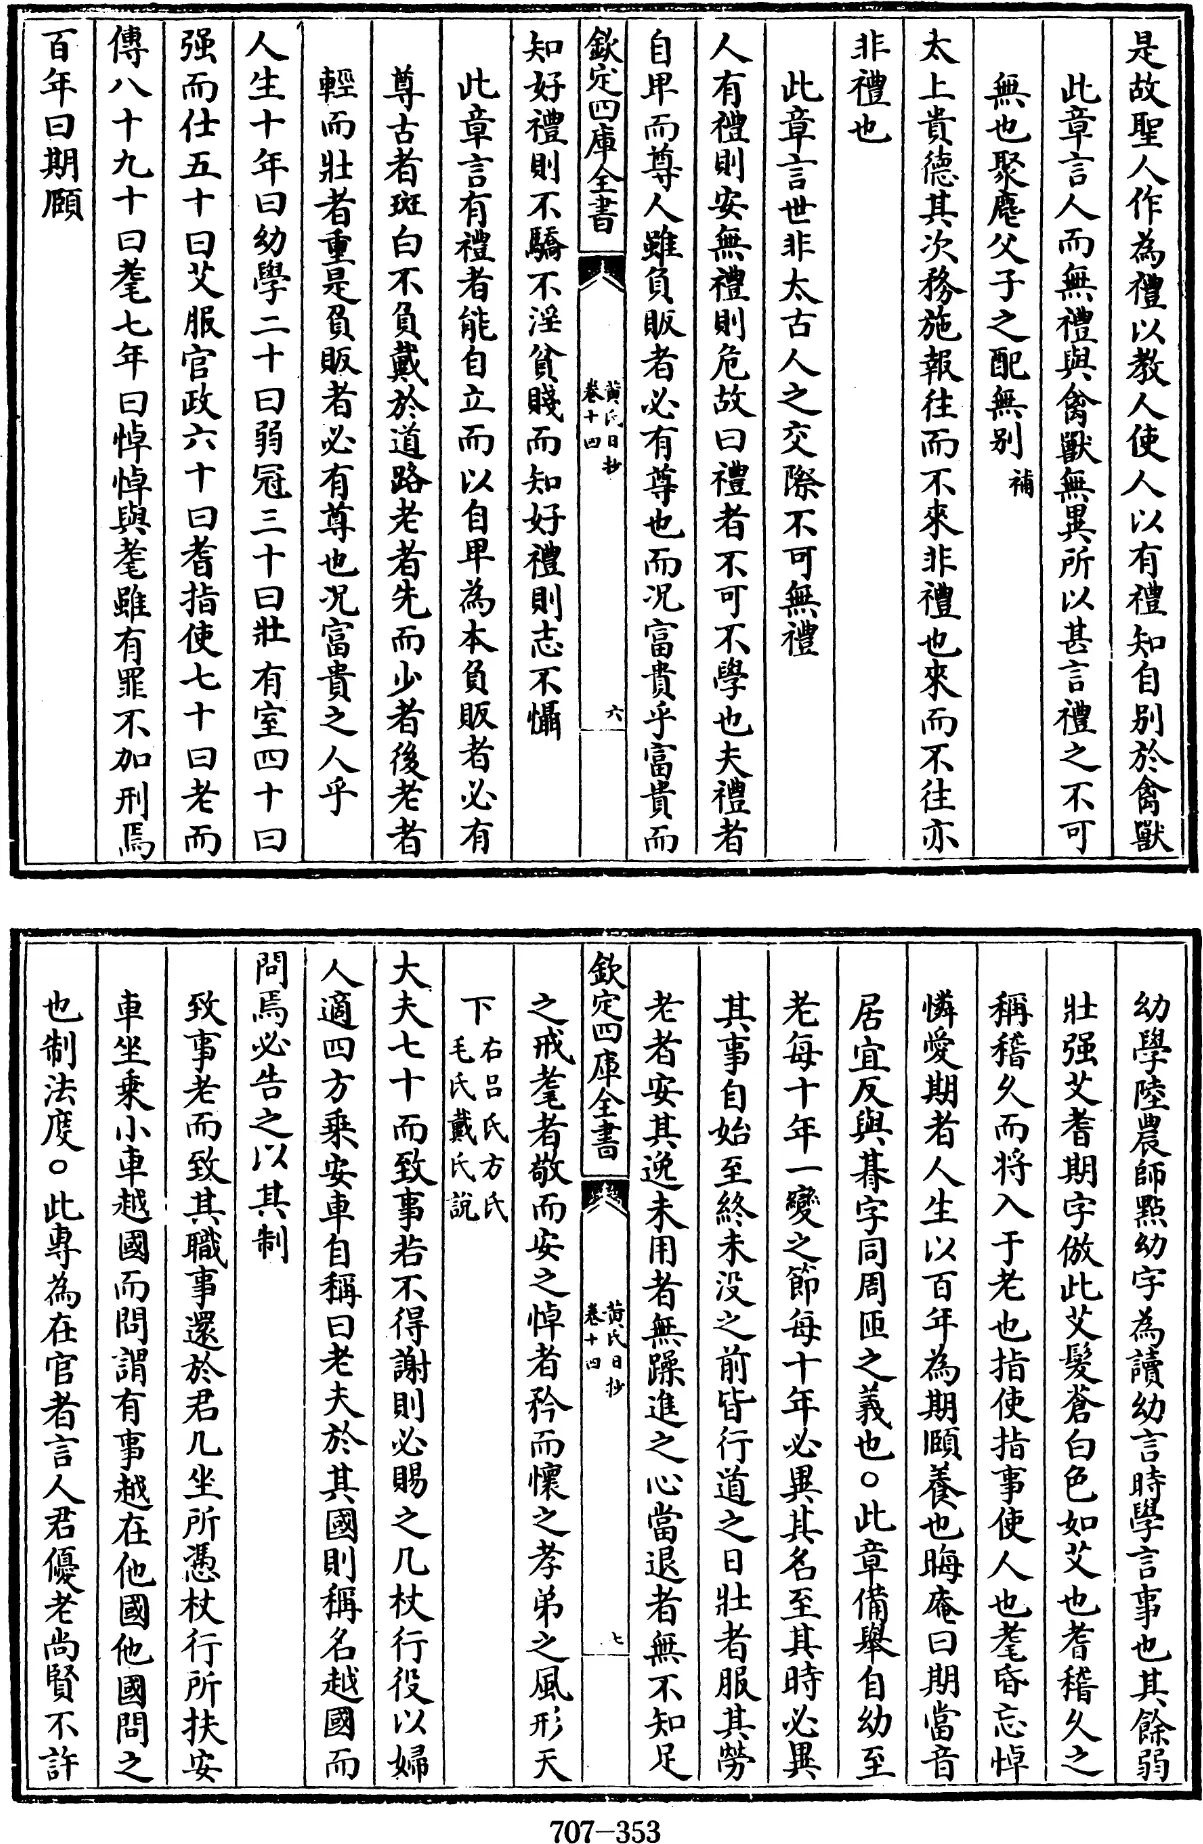 是故聖人作為禮以教人使人以有禮知自別於禽獸
此章言人而無禮與禽獸無異所以甚言禮之不可
無也聚麀父子之配無別補
太上貴德其次務施報往而不來非禮也來而不往亦
非禮也
此章言世非太古人之交際不可無禮
人有禮則安無禮則危故曰禮者不可不學也夫禮者
自卑而尊人雖負販者必有尊也而况富貴乎富貴而
欽定四庫全書
黄氏日抄
卷十四
六
知好禮則不驕不淫貧賤而知好禮則志不懾
此章言有禮者能自立而以自卑為本負販者必有
尊古者斑白不負戴於道路老者先而少者後老者
輕而壯者重是負販者必有尊也况富貴之人乎
人生十年曰幼學二十曰弱冠三十曰壯有室四十曰
强而仕五十曰艾服官政六十曰耆指使七十曰老而
傳八十九十曰耄七年曰悼悼與耄雖有罪不加刑焉
百年曰期頤
幼學陸農師點幼字為讀幼言時學言事也其餘弱
壯强艾耆期字倣此艾髮蒼白色如艾也耆稽久之
稱稽久而將入于老也指使指事使人也耄昏忘悼
憐愛期者人生以百年為期頤養也晦庵曰期當音
居宜反與朞字同周匝之義也○此章備舉自幼至
老每十年一變之節每十年必異其名至其時必異
其事自始至終未没之前皆行道之日壯者服其勞
老者安其逸未用者無躁進之心當退者無不知足
欽定四庫全書
黄氏日抄
卷十四
七
之戒耄者敬而安之悼者矜而懷之孝弟之風形天
下右呂氏方氏
毛氏戴氏說
大夫七十而致事若不得謝則必賜之几杖行役以婦
人適四方乘安車自稱曰老夫於其國則稱名越國而
問焉必告之以其制
致事老而致其職事還於君几坐所憑杖行所扶安
車坐乘小車越國而問謂有事越在他國他國問之
也制法度○此專為在官者言人君優老尚賢不許
707-353